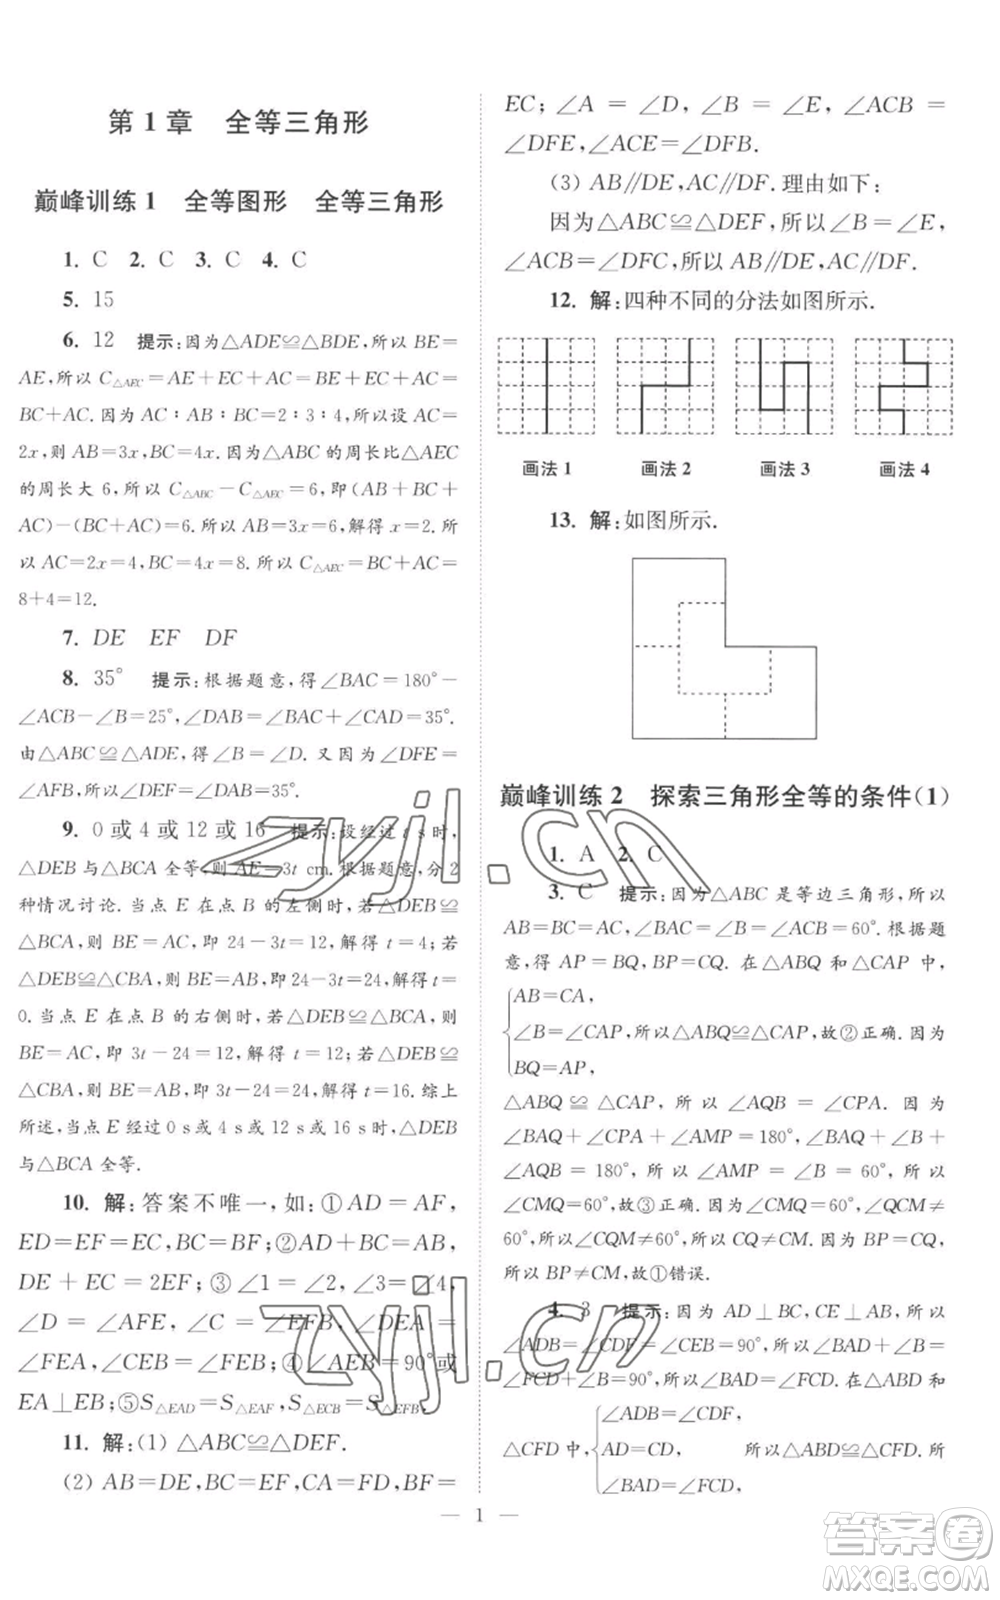 第 1 章　全等三角形
巅峰训练 1　全等图形　全等三角形
1. C　2. C　3. C　4. C
5. 15
6. 12　提示:因为△ADE≌△BDE,所以 BE=
AE,所以 C△AEC=AE+EC+AC=BE+EC+AC=
BC+AC.因为 AC∶AB∶BC=2∶3∶4,所以设 AC=
2x,则 AB=3x,BC=4x.因为△ABC 的周长比△AEC
的周长大 6,所以 C△ABC-C△AEC=6,即(AC+BC+
AC)-(BC+AC)=6.所以 AB=3x=6,解得 x=2.所
以 AC=2x=4,BC=4x=8.所以 C△AEC=BC+AC=
8+4=12.
7. DE　EF　DF
8. 35°　提示:根据题意,得∠BAC=180°-
∠ACB-∠B=25°,∠DAB=∠BAC+∠CAD=35°.
由△ABC≌△ADE,得∠B=∠D.又因为∠DFE=
∠AFB,所以∠DEF=∠DAB=35°.
9. 0 或 4 或 12 或 16　提示:设经过 t s 时,
△DEB 与△BCA 全等,则 AE=3t cm.根据题意,分 2
种情况讨论.当点 E 在点 B 的左侧时,若△DEB≌
△BCA,则 BE=AC,即 24-3t=12,解得 t=4;若
△DEB≌△CBA,则 BE=AB,即 24-3t=24,解得 t=
0.当点 E 在点 B 的右侧时,若△DEB≌△BCA,则
BE=AC,即 3t-24=12,解得 t=12;若△DEB≌
△CBA,则 BE=AB,即 3t-24=24,解得 t=16.综上
所述,当点 E 经过 0 s 或 4 s 或 12 s 或 16 s 时,△DEB
与△BCA 全等.
10. 解:答案不唯一,如:①AD=AF,
ED=EF=EC,BC=BF;②AD+BC=AB,
DE+EC=2EF;③∠1=∠2,∠3=∠4,
∠D=∠AFE,∠C=∠EFB,∠DEA=
∠FEA,∠CEB=∠FEB;④∠AEB=90°或
EA⊥EB;⑤S△EAD=S△EAF,S△ECB=S△EFB.
11. 解:(1) △ABC≌△DEF.
(2) AB=DE,BC=EF,CA=FD,BF=
EC;∠A=∠D,∠B=∠E,∠ACB=
∠DFE,∠ACE=∠DFB.
(3) AB∥DE,AC∥DF.理由如下:
因为△ABC≌△DEF,所以∠B=∠E,
∠ACB=∠DFC,所以 AB∥DE,AC∥DF.
12. 解:四种不同的分法如图所示.
画法 1　画法 2　画法 3　画法 4
13. 解:如图所示.
巅峰训练 2　探索三角形全等的条件(1)
1. A　2. C
3. C　提示:因为△ABC 是等边三角形,所以
AB=BC=AC,∠BAC=∠B=∠ACB=60°.根据题
意,得 AP=BQ,BP=CQ.在△ABQ 和△CAP 中,
AB=CA,
∠B=∠CAP,所以△ABQ≌△CAP,故②正确.因为
BQ=AP,
△ABQ≌△CAP,所以∠AQB=∠CPA.因为
∠BAQ+∠CPA+∠AMP=180°,∠BAQ+∠B+
∠AQB=180°,所以∠AMP=∠B=60°,所以
∠CMQ=60°,故③正确.因为∠CMQ=60°,∠QCM≠
60°,所以∠CQM≠60°,所以 CQ≠CM.因为 BP=CQ,
所以 BP≠CM,故①错误.
4. 3　提示:因为 AD⊥BC,CE⊥AB,所以
∠ADB=∠CDF=∠CEB=90°,所以∠BAD+∠B=
∠FCD+∠B=90°,所以∠BAD=∠FCD.在△ABD 和
∠ADB=∠CDF,
△CFD 中,AD=CD,　所以△ABD≌△CFD.所
∠BAD=∠FCD,
— 1 —
zyjl.cn
zyjl.cn
答案卷
MXQE.COM